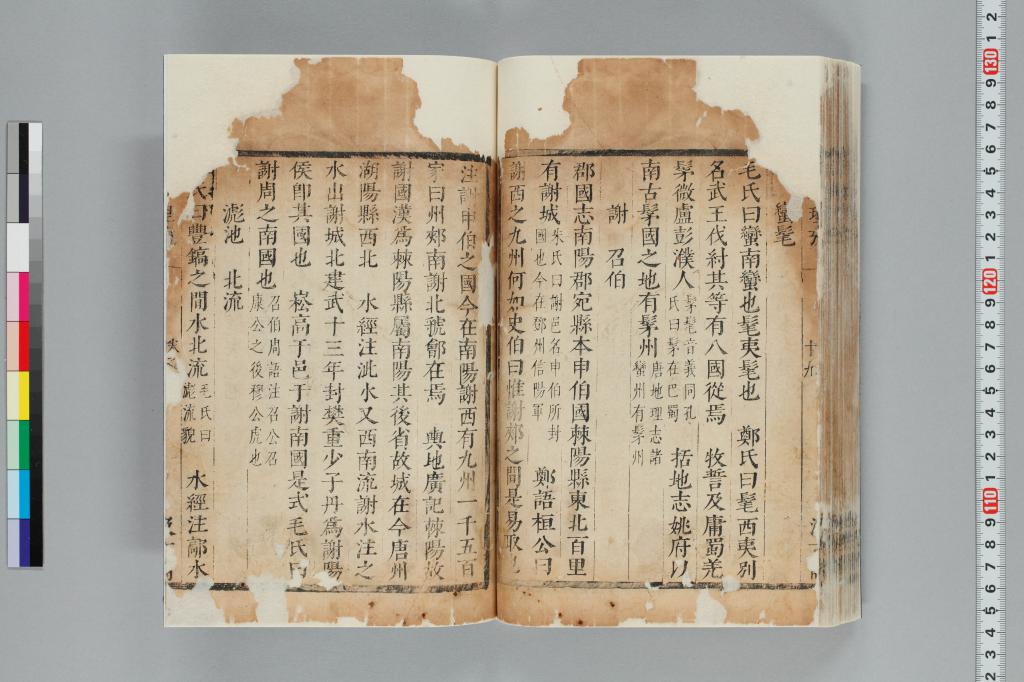 蠻髦
毛氏曰蠻南蠻也髦夷髦也 鄭氏曰髦西夷別
名武王伐紂其等有八國從焉 牧誓及庸蜀羌
髳微盧彭濮人髳髦音義同孔氏曰髳在巴蜀 括地志姚府以
南古髳國之地有髳州唐地理志諸蠻州有髳州
謝 召伯
郡國志南陽郡宛縣本申伯國棘陽縣東北百里
有謝城朱氏曰謝邑名申伯所封國也今在鄧州信陽軍 鄭語桓公曰
謝西之九州何如史伯曰惟謝郟之間是易取也
注謝申伯之國今在南陽謝西有九州二千五百
家曰州郟南謝北虢鄶在焉 輿地廣記棘陽故
謝國漢爲棘陽縣屬南陽其後省故城在今唐州
湖陽縣西北 水經注泚水又西南流謝水注之
水出謝城北建武十三年封樊重少子丹爲謝陽
侯卽其國也 崧高于邑于謝南國是式毛氏曰
謝周之南國也召伯周語注召公召康公之後穆公虎也
滮池 北流
氏曰豐鎬之間水北流毛氏曰滮流貌 水經注鄗水